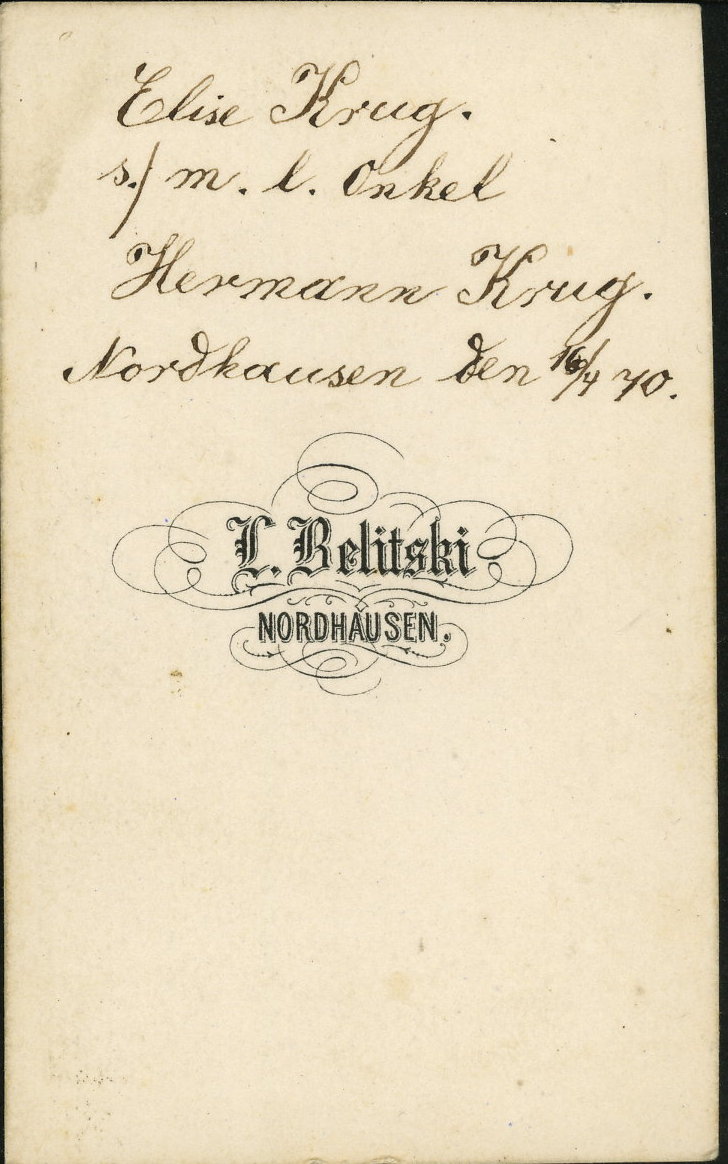 Elise Krug.
s./ m. l. Onkel
Hermann Krug.
Nordhausen den 16/4 70.
L. Belitski
NORDHAUSEN.